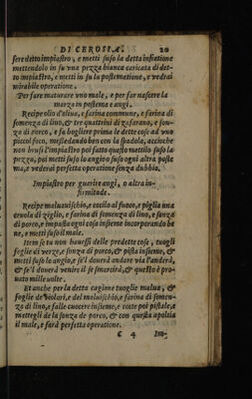 DI CEROSIA. 20
sere detto impiastro, e metti suso la detta infiatione
mettendolo in su vna pezza bianca caricata di det-
to impiastro, e metti in su la postematione, e vedrai
mirabile operatione.
Per fare maturare vno male, e per far nascere la
marza in postema e angi.
Recipe olio d'oliua, e farina commune, e farina di
semenza di lino, & tre quattrini di zafarano, e son-
za di porco, e fa bogliere prima le dette cose ad vno
piccol foco, mesledando ben con la spadola, accioche
non brusi l'impiastro poi fatto questo mettilo suso la
pezza, poi metti suso lo angio o suso ogni altra poste
ma, e vederai perfetta operatione senza dubbio.
Impiastro per guarire angi, o altra in-
firmitade.
Recipe maluauischio, e coctilo al fuoco, e piglia una
cruola di ziglio, e farina di semenza di lino, e sonza
di porco, e impasta ogni cosa insieme incorporando be
ne, e metti suso il male.
Item se tu non hauessi delle predette cose, tuogli
foglie di verze, e sonza di porco, & pista insieme, &
metti suso lo angio, e se'l douerà andare via l'anderà,
& se'l douerà venire il se smarcirà, & questo è pro-
uato mille volte.
Et anche per la detta cagione tuoglie malua, &
foglie de violari, e del maluischio, e farina di semen-
za di lino, e falle cuocere insieme, e coste poi pistale, e
mettegli de la sonza de porco, & con questa apoltia
il male, e farà perfetta operatione.
C 4 Im-